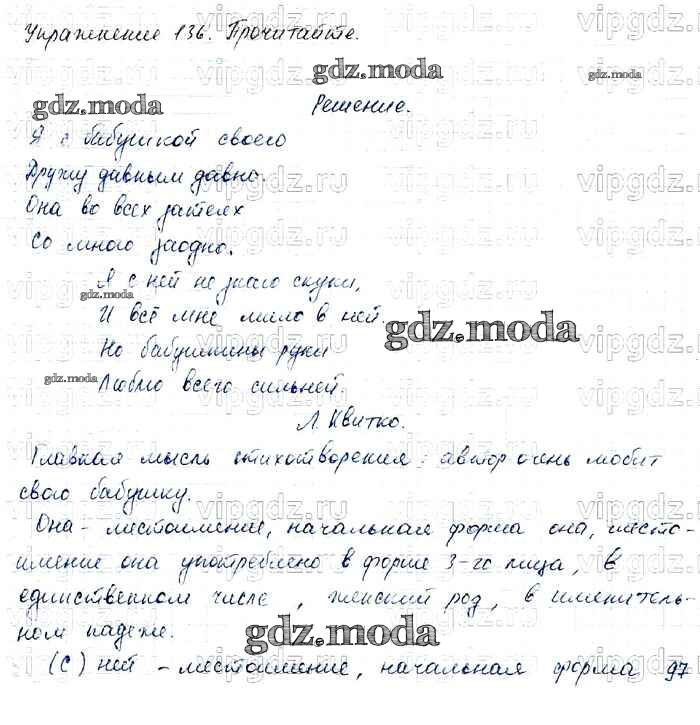 Упражнение 136. Прочитайте.
gdz.moda
Решение.
Я с бабушкой своего
Дружу давным давно.
Она во всех зателх
Со много заодно.
Я с ней не знаго скуки,
И всё мне мило в ней
Но бабушкины руки
Люблю всего сильней.
Л. Квитко.
Главная мысль стихотворения: автор очень любит
свого бабушку.
Она - местоимение, начальная форма она, место-
имение она употреблено в форме 3-го лица, в
единственном числе, женский род, в именитель-
ном падеже.
(С) ней - местоимение, начальная форма 97